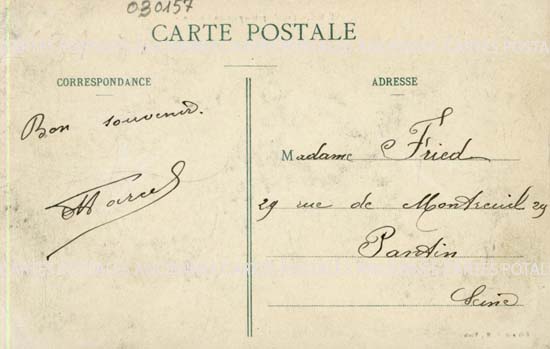 030157
CARTE POSTALE
CORRESPONDANCE
Bon souvenir.
Marcel
ADRESSE
Madame Fried
29 rue de Montreuil 29
Pantin
Seine